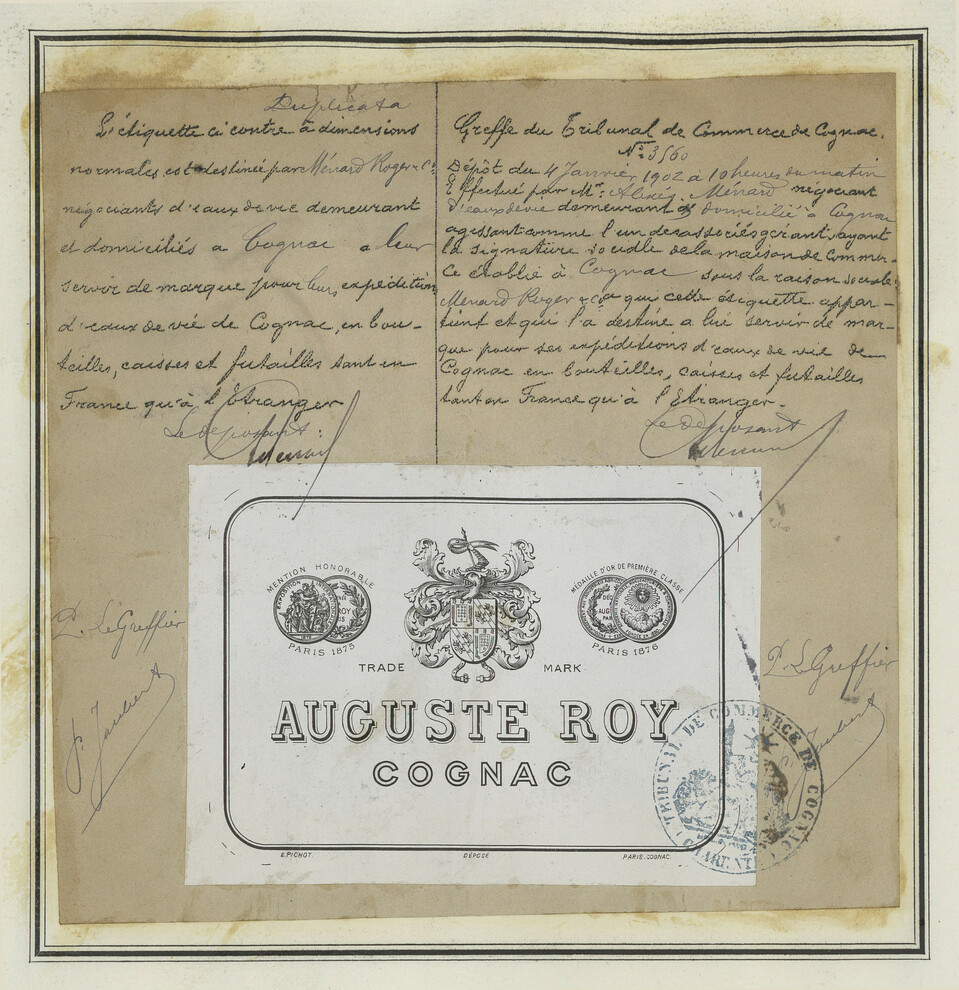 Duplicata
L'étiquette ci contre à dimensions
normales, est destinée par Ménard Roger & Cie
négociants d'eaux de vie demeurant
et domiciliés a Cognac a leur
servir de marque pour leurs expéditions
d'eaux de vie de Cognac, en bou-
teilles, caisses et futailles tant en
France qu'à l'Etranger
Le déposant:
P. Le Greffier
Greffe du Tribunal de Commerce de Cognac.
No 3560
Dépôt du 4 Janvier 1902 à 10 heures du matin
Effectué par Mr. Alexis Ménard négociant
d'eaux de vie demeurant & domicilié à Cognac
agissant comme l'un des associés gérant, ayant
la signature sociale de la maison de Commer-
ce établie à Cognac sous la raison sociale
Ménard Roger & Co a qui cette étiquette appar-
tient et qui l'a destiné a lui servir de mar-
que pour ses expéditions d'eaux de vie de
Cognac en bouteilles, caisses et futailles
tant en France qu'à l'Etranger.
Le déposant
P. Le Greffier
MENTION HONORABLE
PARIS 1875
MÉDAILLE D'OR DE PREMIÈRE CLASSE
PARIS 1876
TRADE MARK
AUGUSTE ROY
COGNAC
E. PICHOT.
DÉPOSÉ
PARIS. COGNAC.
TRIBUNAL DE COMMERCE DE COGNAC
CHARENTE